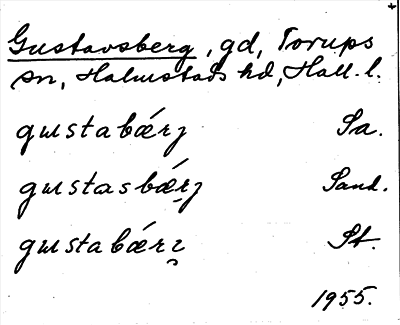 Gustavsberg, gd, Torups
sn, Halmstads hd, Hall. l.
gustabǽrȷ Sa.
gustasbǽrȷ Sand.
gustabǽrɿ St.
1955.